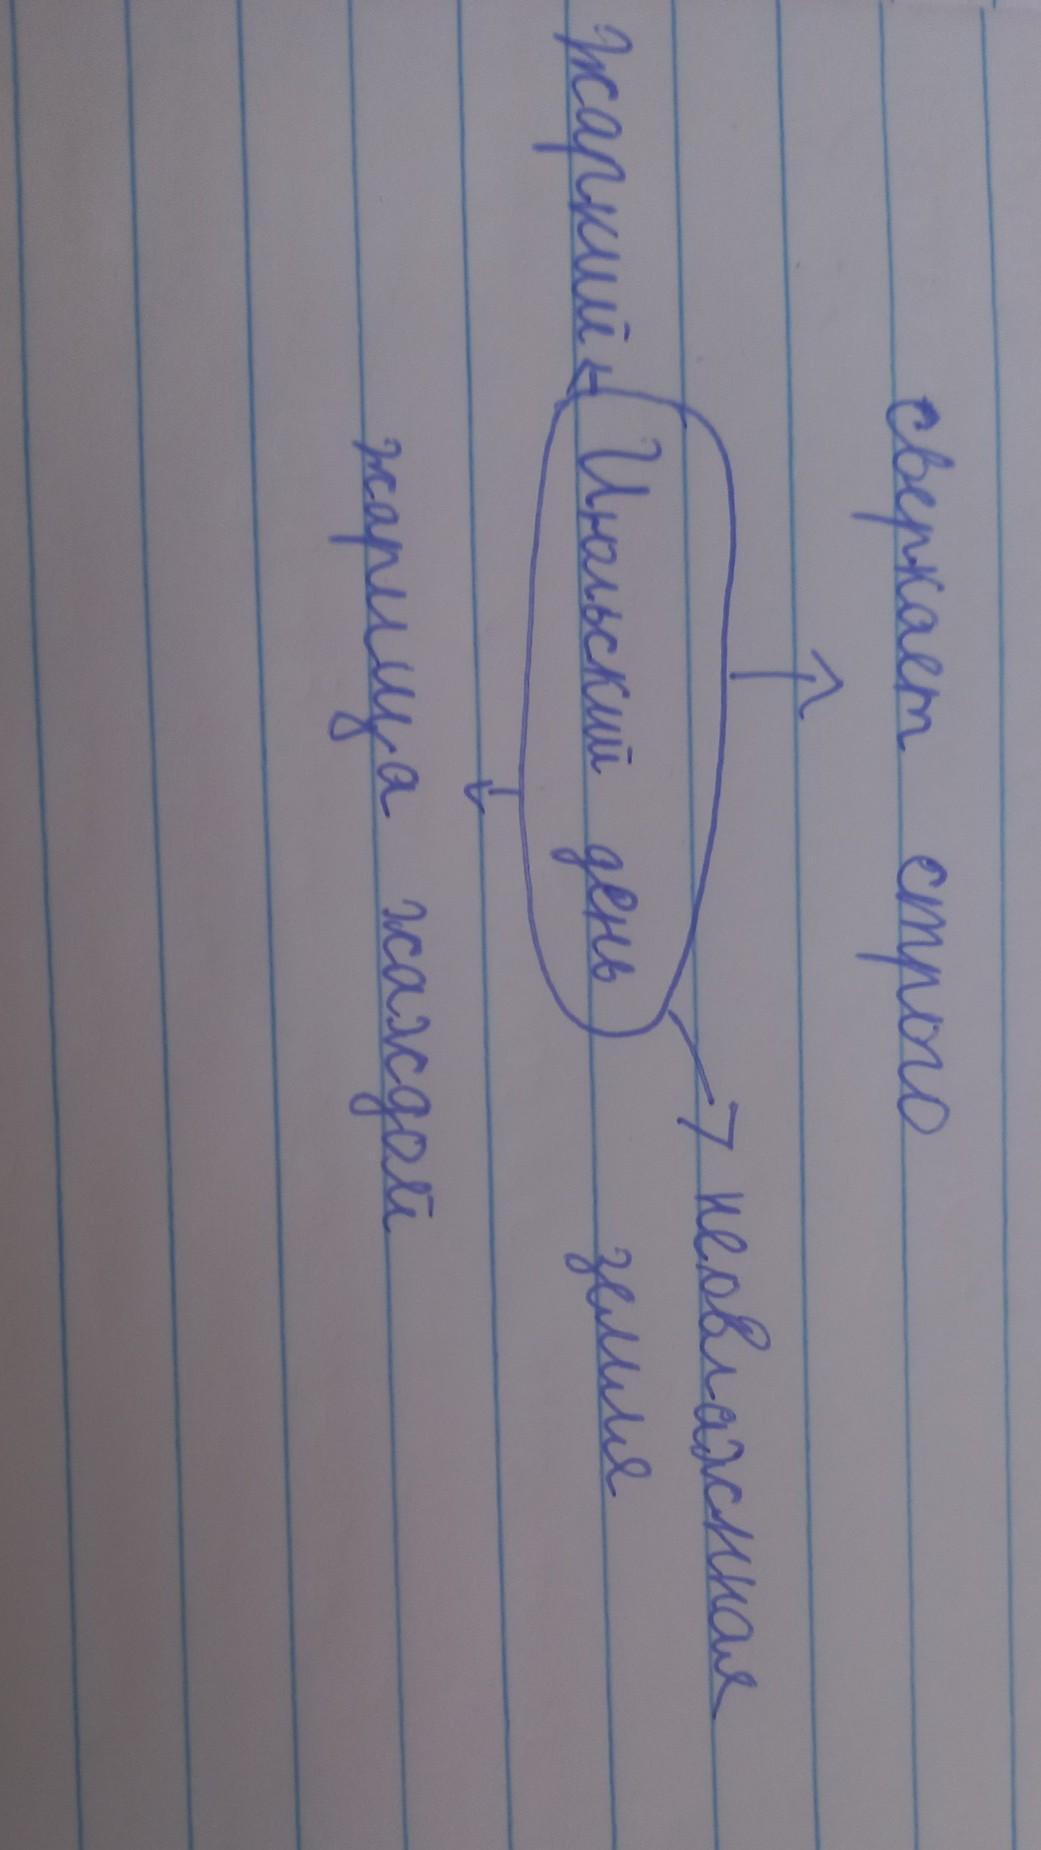 сверкает строго
жаркий
Июльский день
неовлажнная
земля
жарища жаждой